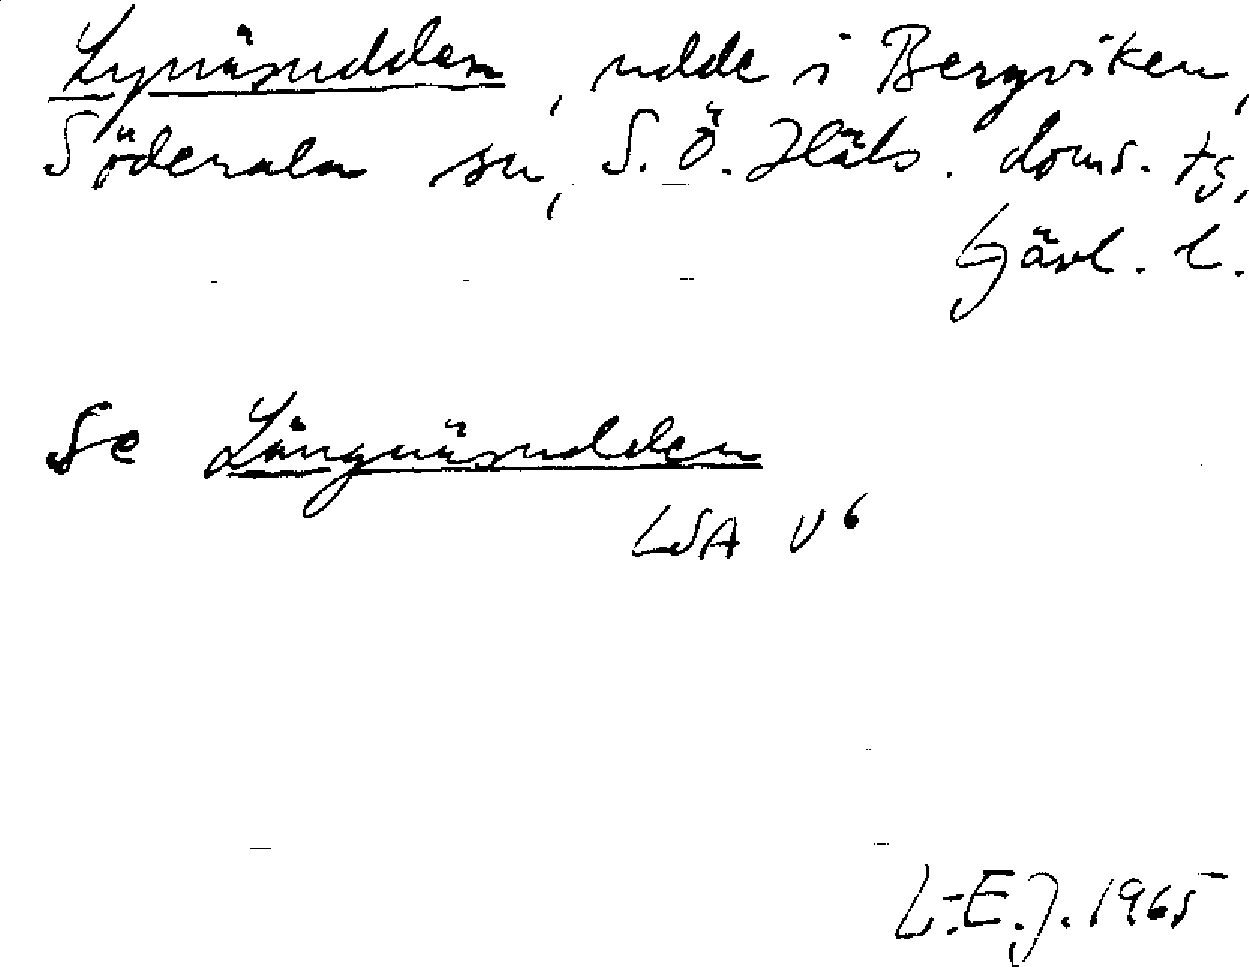 Lynäsudden, udde i Bergviken,
Söderala sn, S. Ö. Häls. doms. tg,
Gävl. l.
Se Långnäsudden
LSA U6
L-E.J. 1965